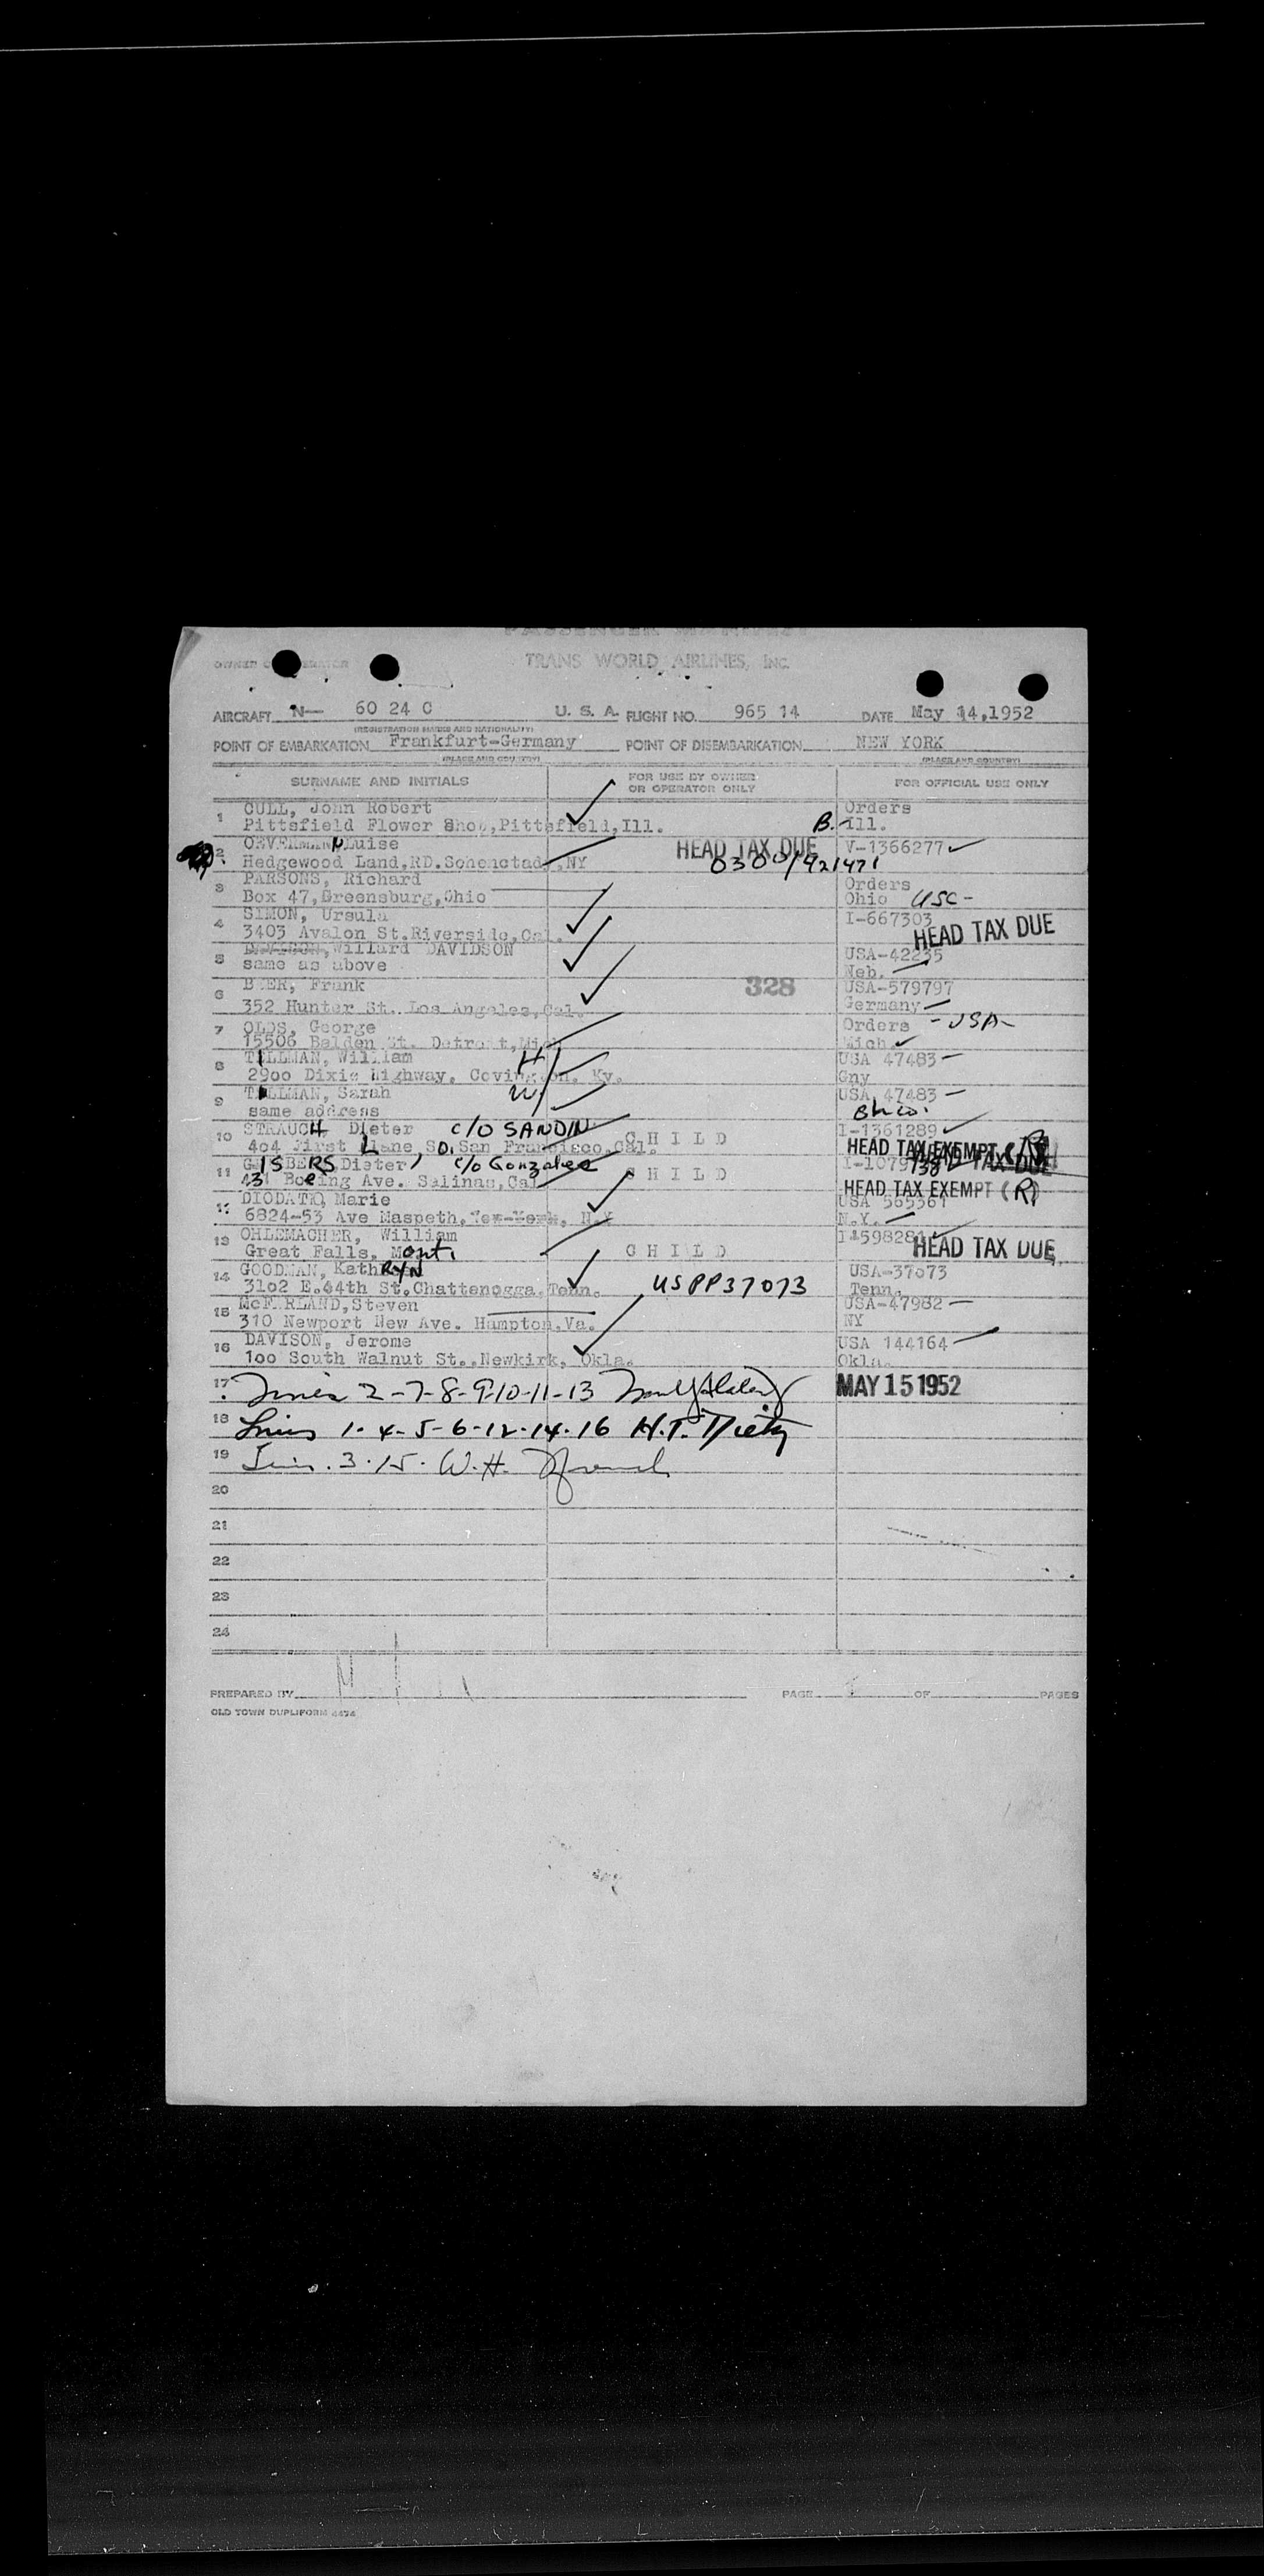 PASSENGER MANIFEST
OWNER OR OPERATOR TRANS WORLD AIRLINES, INC.
AIRCRAFT N— 60 24 C U. S. A. FLIGHT NO. 965 14 DATE May 14,1952
(REGISTRATION MARKS AND NATIONALITY)
POINT OF EMBARKATION Frankfurt-Germany POINT OF DISEMBARKATION NEW YORK
(PLACE AND COUNTRY) (PLACE AND COUNTRY)
SURNAME AND INITIALS FOR USE BY OWNER OR OPERATOR ONLY FOR OFFICIAL USE ONLY
1 CULL, John Robert Orders
Pittsfield Flower Shop,Pittsfield,Ill. B.-Ill.
2 Luise HEAD TAX DUE V-1366277
Hedgewood Land,RD.Schenctady,NY 0300/921471
3 PARSONS, Richard Orders
Box 47,Greensburg,Ohio Ohio USC-
4 SIMON, Ursula I-667303
3403 Avalon St.Riverside,Cal. HEAD TAX DUE
5 Willard DAVIDSON USA-42235
same as above Neb.
6 Frank 328 USA-579797
352 Hunter St. Los Angeles,Cal. Germany
7 OLDS, George Orders -USA-
15506 Belden St. Detroit,Mich Mich.
8 TILLMAN, William H USA 47483
2900 Dixie Highway, Covington, Ky. Gny
9 TILLMAN, Sarah W USA 47483
same address
10 STRAUCH Dieter C/O SANDIN I-1361289
404 First Lane, SO. San Francisco,Cal. CHILD HEAD TAX EXEMPT (R)
11 GISBERS Dieter C/o Gonzales
Boeing Ave. Salinas,Cal CHILD HEAD TAX EXEMPT (R)
DIODATO, Marie USA 565361
6824-53 Ave Maspeth, New-York, N.Y N.Y.
13 OHLEMACHER, William
Great Falls, Mont. CHILD HEAD TAX DUE
14 GOODMAN, KathRYN USA-37073
3102 E.44th St.Chattenogga,Tenn. USPP37073 Tenn.
15 McFARLAND,Steven USA-47982
310 Newport New Ave. Hampton,Va. NY
16 DAVISON, Jerome USA 144164
100 South Walnut St.,Newkirk, Okla. Okla.
17 Lines 2-7-8-9-10-11-13 MAY 15 1952
18 Lines 1-4-5-6-12-14-16 H.T.
19 Lin. 3.15. W.H.
20
21
22
23
24
PREPARED BY PAGE OF PAGES
OLD TOWN DUPLIFORM 4474